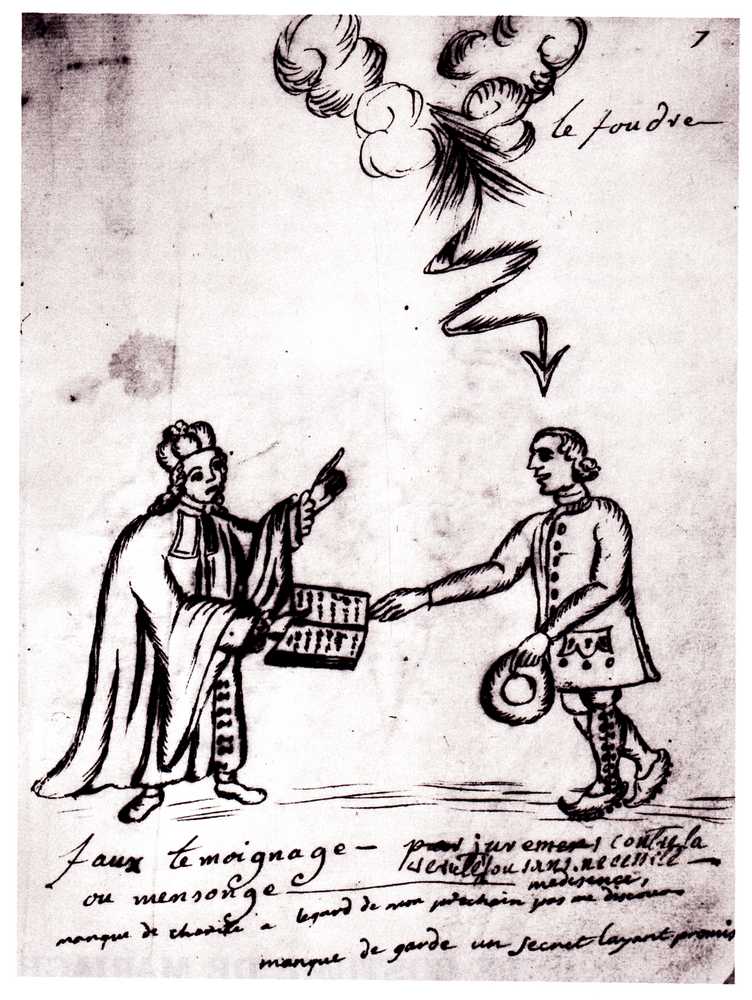 7
le foudre
faux temoignage — par juremens contre la
verite ou sans necessité —
ou mensonge — medisence,
manque de charité a legard de mon prochain par me
manque de garde un secret layant promis